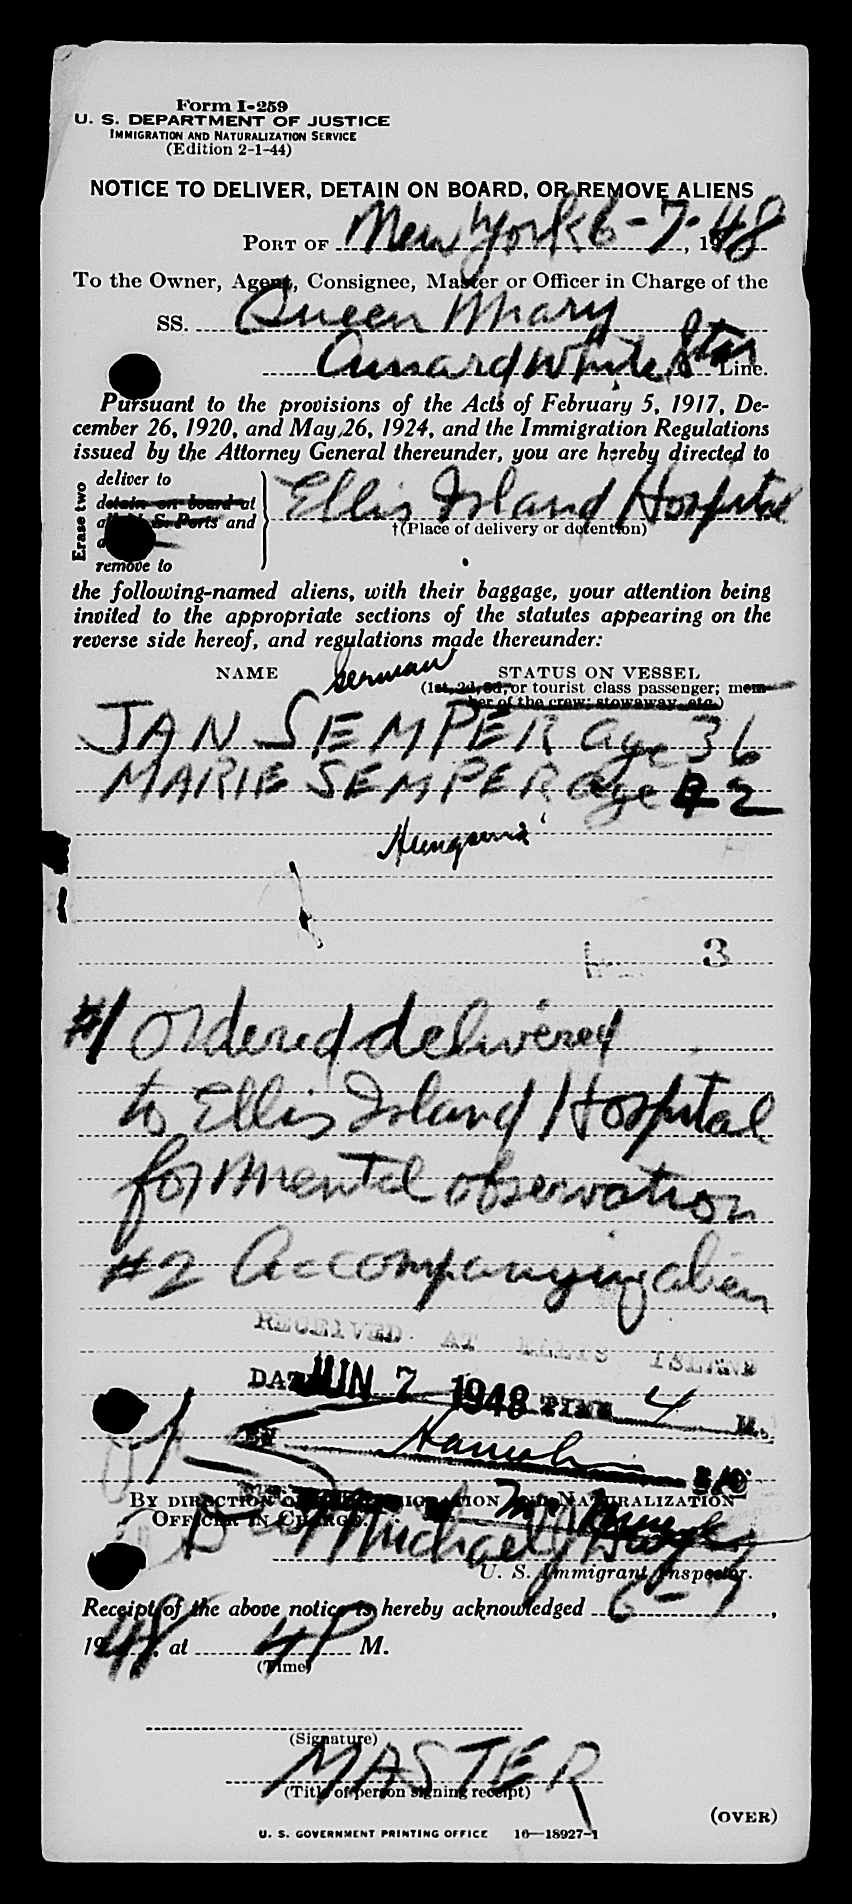 Form I-259
U. S. DEPARTMENT OF JUSTICE
IMMIGRATION AND NATURALIZATION SERVICE
(Edition 2-1-44)
NOTICE TO DELIVER, DETAIN ON BOARD, OR REMOVE ALIENS
PORT OF New York 6-7-, 1948
To the Owner, Agent, Consignee, Master or Officer in Charge of the
SS. Queen Mary
Cunard White Star Line.
Pursuant to the provisions of the Acts of February 5, 1917, De-
cember 26, 1920, and May 26, 1924, and the Immigration Regulations
issued by the Attorney General thereunder, you are hereby directed to
Erase two
deliver to
detain on board at
S. Ports and
remove to
Ellis Island Hospital
†(Place of delivery or detention)
the following-named aliens, with their baggage, your attention being
invited to the appropriate sections of the statutes appearing on the
reverse side hereof, and regulations made thereunder:
NAME German STATUS ON VESSEL
(1st, 2d, 3d, or tourist class passenger; mem-
ber of the crew; stowaway, etc.)
JAN SEMPER age 36
MARIE SEMPER age 42
3
#1 ordered delivered
to Ellis Island Hospital
for mental observation
#2 Accompanying alien
RECEIVED AT ELLIS ISLAND
DATE JUN 7 1948 TIME 4 M.
BY
BY DIRECTION OF IMMIGRATION AND NATURALIZATION
OFFICER IN CHARGE
Michael
U. S. Immigrant Inspector.
Receipt of the above notice is hereby acknowledged 6-7,
1948, at 4 P M.
(Time)
(Signature)
MASTER
(Title of person signing receipt)
(OVER)
U. S. GOVERNMENT PRINTING OFFICE 16—18927-1